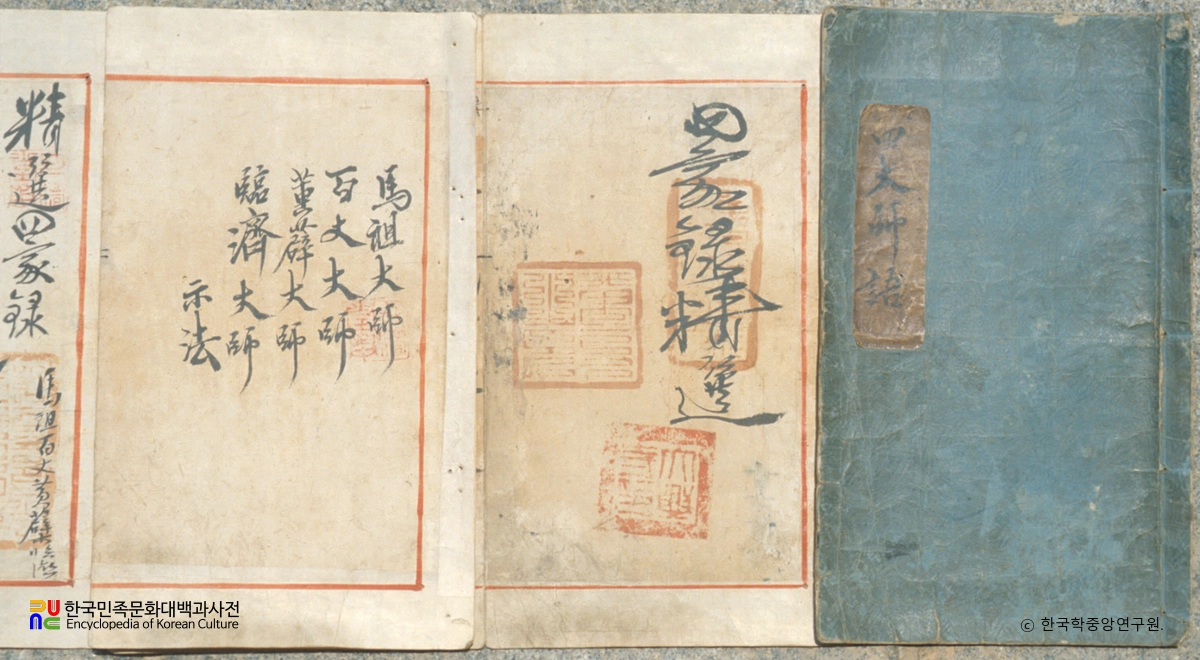 四大師語
四家錄精選
馬祖大師
百丈大師
黃蘗大師
臨濟大師
示法
精選四家録
馬祖百丈黃蘗臨濟
한국민족문화대백과사전
Encyclopedia of Korean Culture
ⓒ 한국학중앙연구원.